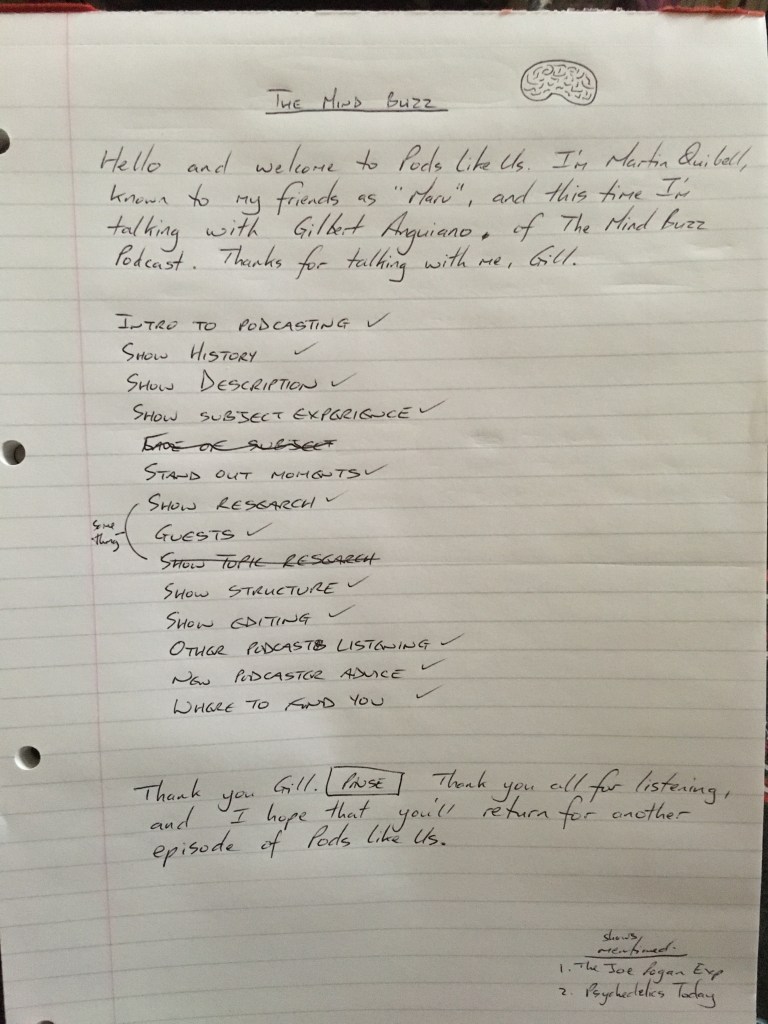 THE MIND BUZZ
Hello and welcome to Pods Like Us. I'm Martin Quibell,
known to my friends as "Marv", and this time I'm
talking with Gilbert Anguiano, of The Mind Buzz
Podcast. Thanks for talking with me, Gill.
INTRO TO PODCASTING ✓
SHOW HISTORY ✓
SHOW DESCRIPTION ✓
SHOW SUBJECT EXPERIENCE ✓
OF SUBJECT
STAND OUT MOMENTS ✓
SHOW RESEARCH ✓
Same thing
GUESTS ✓
SHOW TOPIC RESEARCH
SHOW STRUCTURE ✓
SHOW EDITING ✓
OTHER PODCASTS LISTENING ✓
NEW PODCASTER ADVICE ✓
WHERE TO FIND YOU ✓
Thank you Gill. PAUSE Thank you all for listening,
and I hope that you'll return for another
episode of Pods Like Us.
shows
mentioned.
1. The Joe Rogan Exp
2. Psychedelics Today